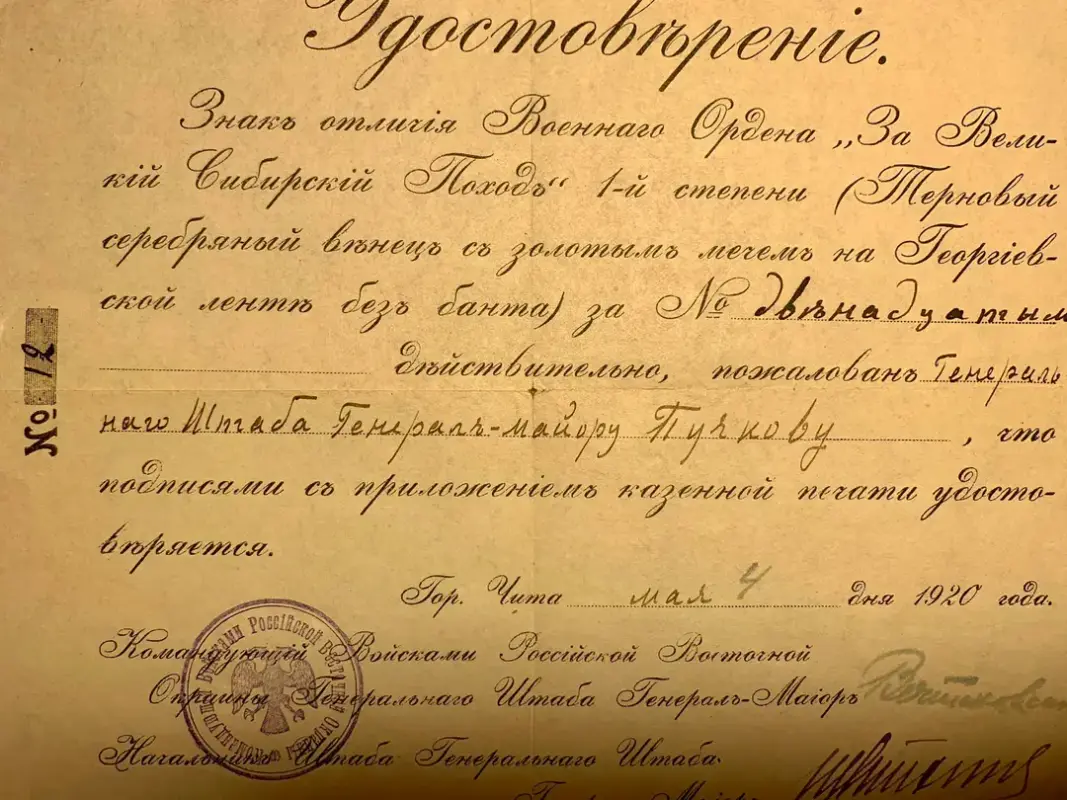 Удостовѣреніе.
Знакъ отличія Военнаго Ордена „За Вели-
кій Сибирскій Походъ“ 1-й степени (Терновый
серебряный вѣнецъ съ золотымъ мечемъ на Георгіев-
ской лентѣ безъ банта) за № двѣнадцатым
дѣйствительно, пожалованъ Генераль
наго Штаба Генералъ-майору Пучкову, что
подписями съ приложеніемъ казенной печати удосто-
вѣряется.
№ 12
Гор. Чита мая 4 дня 1920 года.
Командующій Войсками Россійской Восточной
Окраины Генеральнаго Штаба Генералъ-Маіоръ
Начальникъ Штаба Генеральнаго Штаба